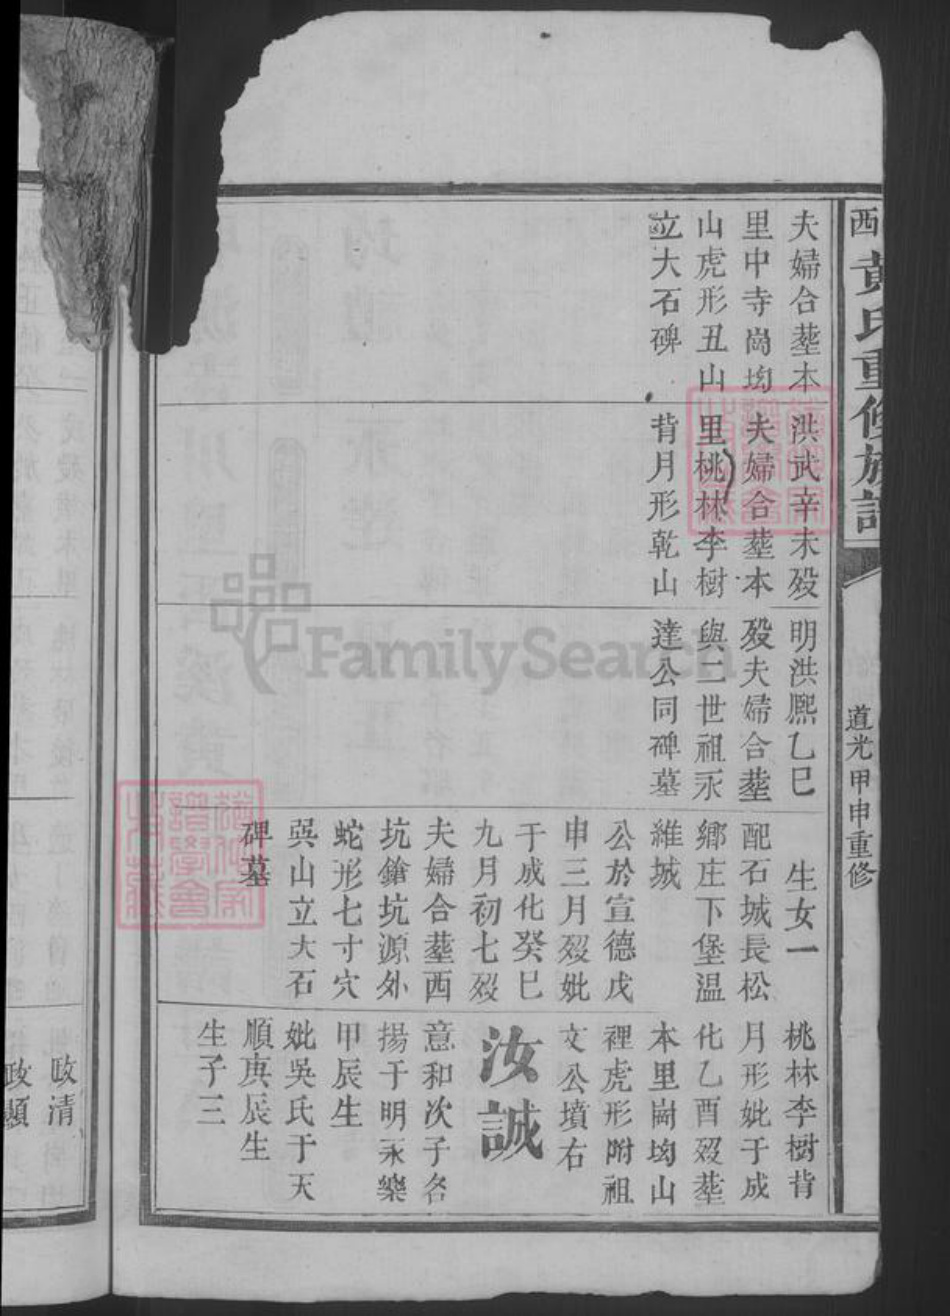 西 黄氏重修族譜
道光甲申重修
夫婦合塟本
里中寺崗坳
山虎形丑山
立大石碑
洪武辛未殁
夫婦合塟本
里桃林李樹
背月形乾山
明洪熙乙巳
殁夫婦合塟
與二世祖永
達公同碑墓
生女一
配石城長松
鄉庄下堡温
維城
公於宣德戊
申三月殁妣
于成化癸巳
九月初七殁
夫婦合塟西
坑鎗坑源外
蛇形七寸穴
巽山立大石
碑墓
桃林李樹背
月形妣于成
化乙酉殁塟
本里崗坳山
裡虎形附祖
文公墳右
汝誠
意和次子名
揚于明永樂
甲辰生
妣吳氏于天
順庚辰生
生子三
政清
政顯
FamilySearch